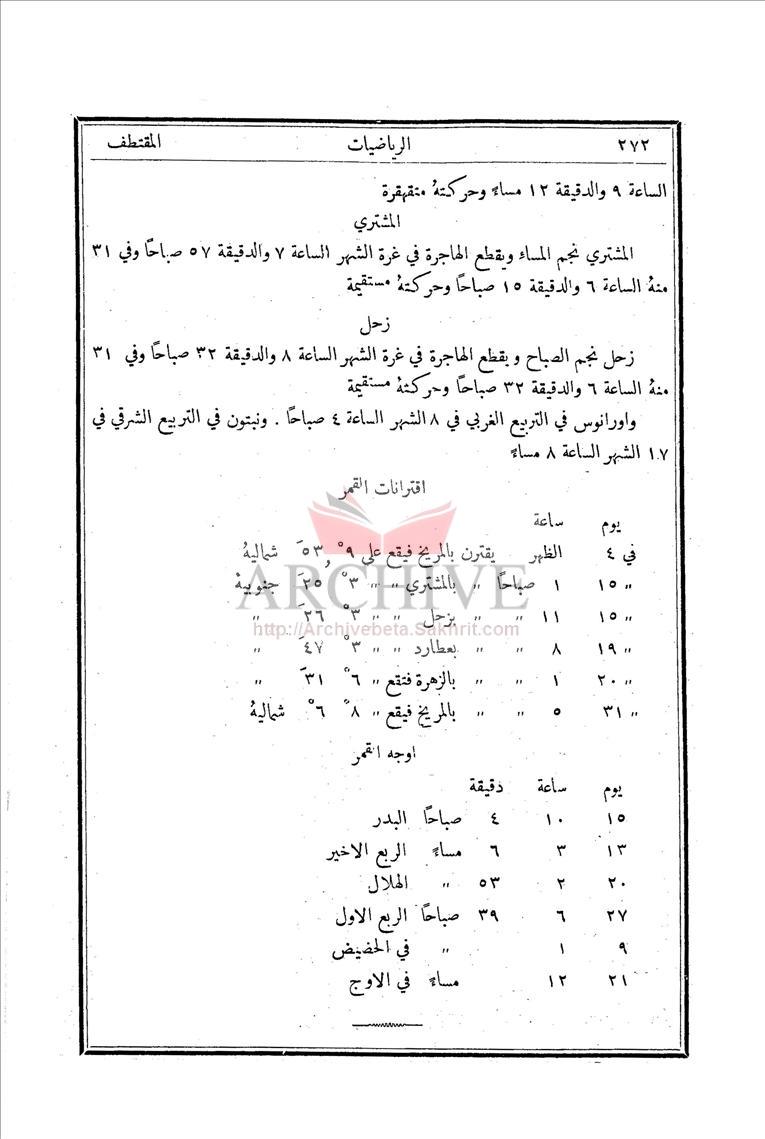 ٢٧٢ الرياضيات المقتطف
الساعة ٩ والدقيقة ١٢ مساءً وحركتهُ متقهقرة
المشتري
المشتري نجم المساء ويقطع الهاجرة في غرة الشهر الساعة ٧ والدقيقة ٥٧ صباحًا وفي ٣١
منهُ الساعة ٦ والدقيقة ١٥ صباحًا وحركتهُ مستقيمة
زحل
زحل نجم الصباح ويقطع الهاجرة في غرة الشهر الساعة ٨ والدقيقة ٣٢ صباحًا وفي ٣١
منهُ الساعة ٦ والدقيقة ٣٢ صباحًا وحركتهُ مستقيمة
واورانوس في التربيع الغربي في ٨ الشهر الساعة ٤ صباحًا . ونبتون في التربيع الشرقي في
١٧ الشهر الساعة ٨ مساءً
اقترانات القمر
يوم ساعة
في ٤ الظهر يقترن بالمريخ فيقع على ٩° ٥٣َ شماليهُ
" ١٥ ١ صباحًا " بالمشتري " " ٣° ٢٥َ جنوبيهُ
" ١٥ ١١ " " بزحل " " ٣° ٢٦َ "
" ١٩ ٨ " " بعطارد " " ٣° ٤٧َ "
" ٢٠ ١ " " بالزهرة فتقع " ٦° ٣١َ "
" ٣١ ٥ " " بالمريخ فيقع " ٨° ٦° شماليهُ
اوجه القمر
يوم ساعة دقيقة
١٥ ١٠ ٤ صباحًا البدر
١٣ ٣ ٦ مساءً الربع الاخير
٢٠ ٢ ٥٣ " الهلال
٢٧ ٦ ٣٩ صباحًا الربع الاول
٩ ١ " في الحضيض
٢١ ١٢ مساءً في الاوج
ARCHIVE
http://Archivebeta.Sakhrit.com